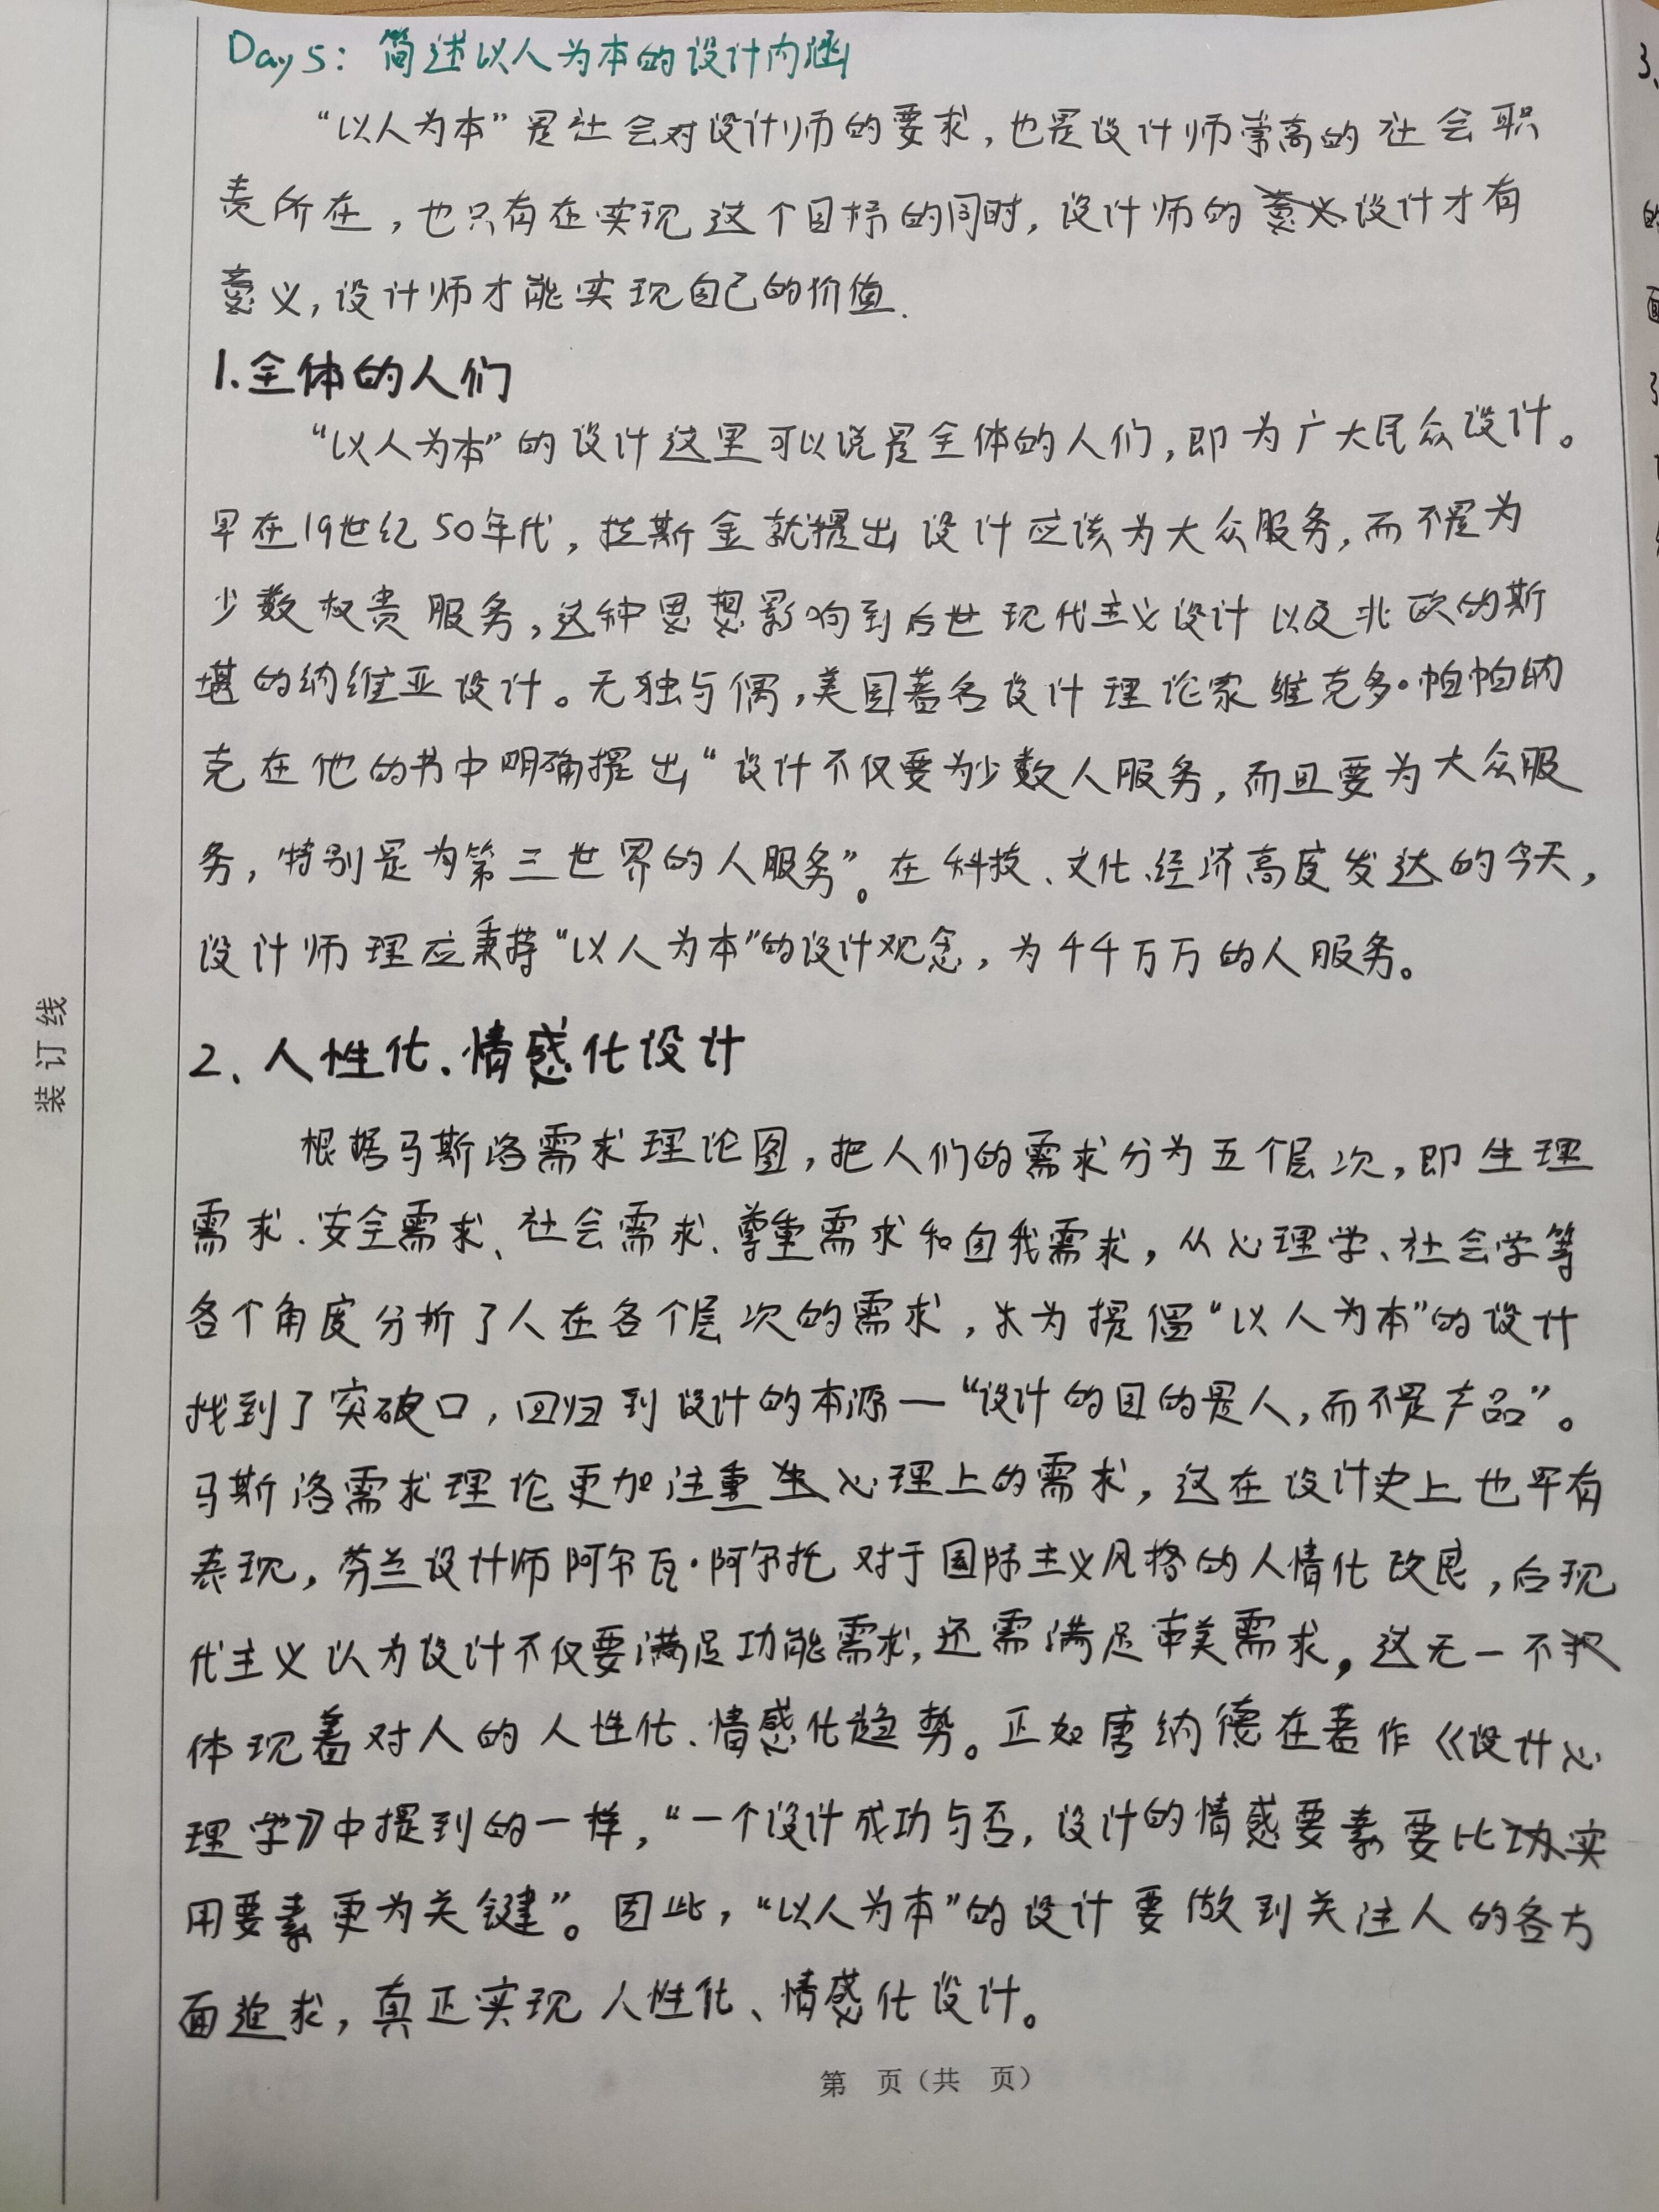 Day5：简述以人为本的设计内涵
“以人为本”是社会对设计师的要求，也是设计师崇高的社会职
责所在，也只有在实现这个目标的同时，设计师的设计才有
意义，设计师才能实现自己的价值.
1.全体的人们
“以人为本”的设计这里可以说是全体的人们，即为广大民众设计。
早在19世纪50年代，拉斯金就提出设计应该为大众服务，而不是为
少数权贵服务，这种思想影响到后世现代主义设计以及北欧的斯
堪的纳维亚设计。无独与偶，美国著名设计理论家维克多·帕帕纳
克在他的书中明确提出“设计不仅要为少数人服务，而且要为大众服
务，特别是为第三世界的人服务”。在科技、文化、经济高度发达的今天，
设计师理应秉持“以人为本”的设计观念，为千千万万的人服务。
2、人性化、情感化设计
根据马斯洛需求理论图，把人们的需求分为五个层次，即生理
需求、安全需求、社会需求、尊重需求和自我需求，从心理学、社会学等
各个角度分析了人在各个层次的需求，为提倡“以人为本”的设计
找到了突破口，回归到设计的本源—“设计的目的是人，而不是产品”。
马斯洛需求理论更加注重心理上的需求，这在设计史上也早有
表现，芬兰设计师阿尔瓦·阿尔托对于国际主义风格的人情化改良，后现
代主义认为设计不仅要满足功能需求，还需满足审美需求，这无一不
体现着对人的人性化、情感化趋势。正如唐纳德在著作《设计心
理学》中提到的一样，“一个设计成功与否，设计的情感要素要比实
用要素更为关键”。因此，“以人为本”的设计要做到关注人的各方
面追求，真正实现人性化、情感化设计。
第 页（共 页）
装订线
3、
的
面